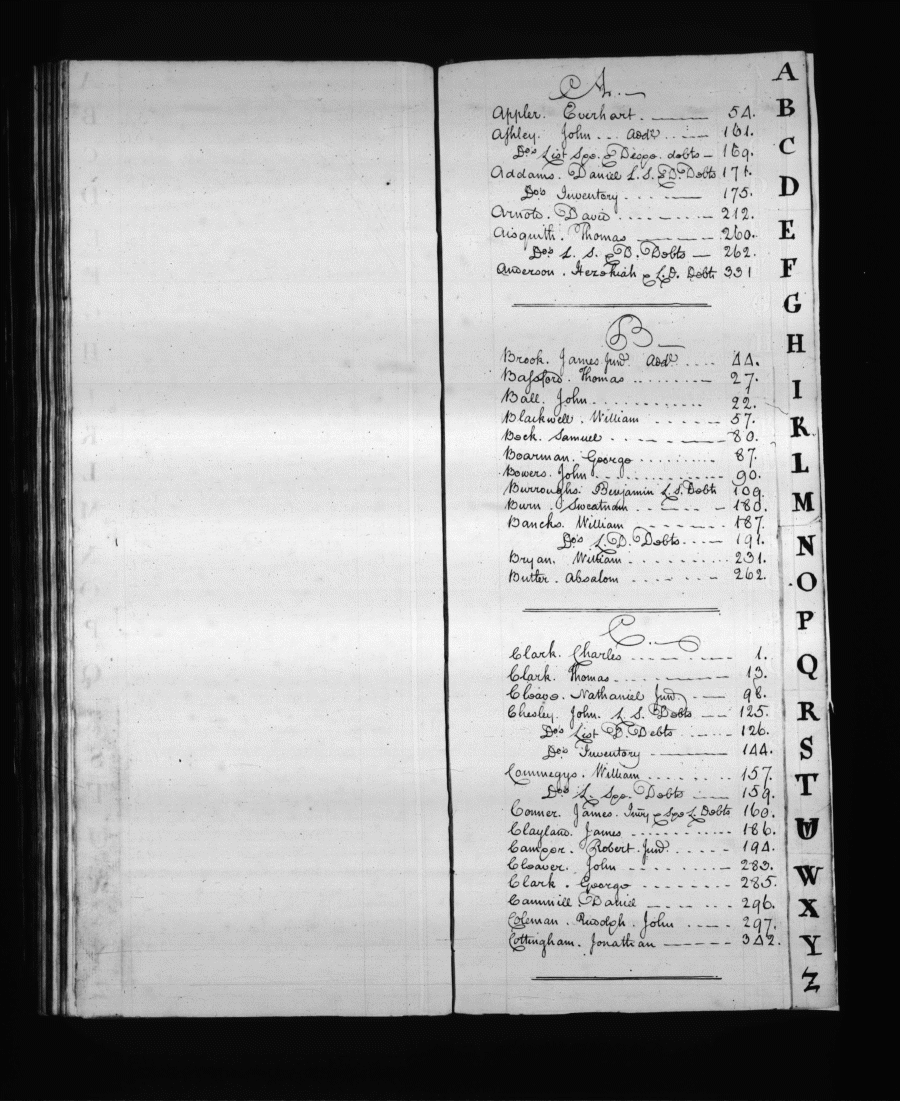 A
Appler. Everhart. 54.
Ashley. John... Add.l 161.
Do's List Spe. & Despe. debts 169.
Addams. Daniel L. S. & D. Debts 171.
Do's Inventory 175.
Arnold. David 212.
Aisquith. Thomas 260.
Do's L. S. & D. Debts 262.
Anderson. Hezekiah & L. D. Debts 331
B
Brook. James Jun.r Add.l 44.
Bassford. Thomas 27.
Ball. John 22.
Blackwell. William 57.
Bock. Samuel 80.
Boarman. George 87.
Bowers. John 90.
Burroughs. Benjamin L. S. Debts 109.
Burn. Sweatnam 180.
Bancks. William 187.
Do's L. D. Debts 191.
Bryan. William 231.
Butler. Absalom 262.
C
Clark. Charles 1.
Clark. Thomas 13.
Cleave. Nathaniel Jun.r 98.
Chesley. John. L. S. Debts 125.
Do's List D. Debts 126.
Do's Inventory 144.
Commegys. William 157.
Do's L. Spe. Debts 159.
Conner. James. Inv.ry & Spe L. Debts 160.
Clayland. James 186.
Camper. Robert. Jun.r 194.
Cleaver. John 283.
Clark. George 285.
Cammill Daniel 296.
Coleman. Rudolph. John 297.
Cottingham. Jonathan 342.
A
B
C
D
E
F
G
H
I
K
L
M
N
O
P
Q
R
S
T
W
X
Y
Z